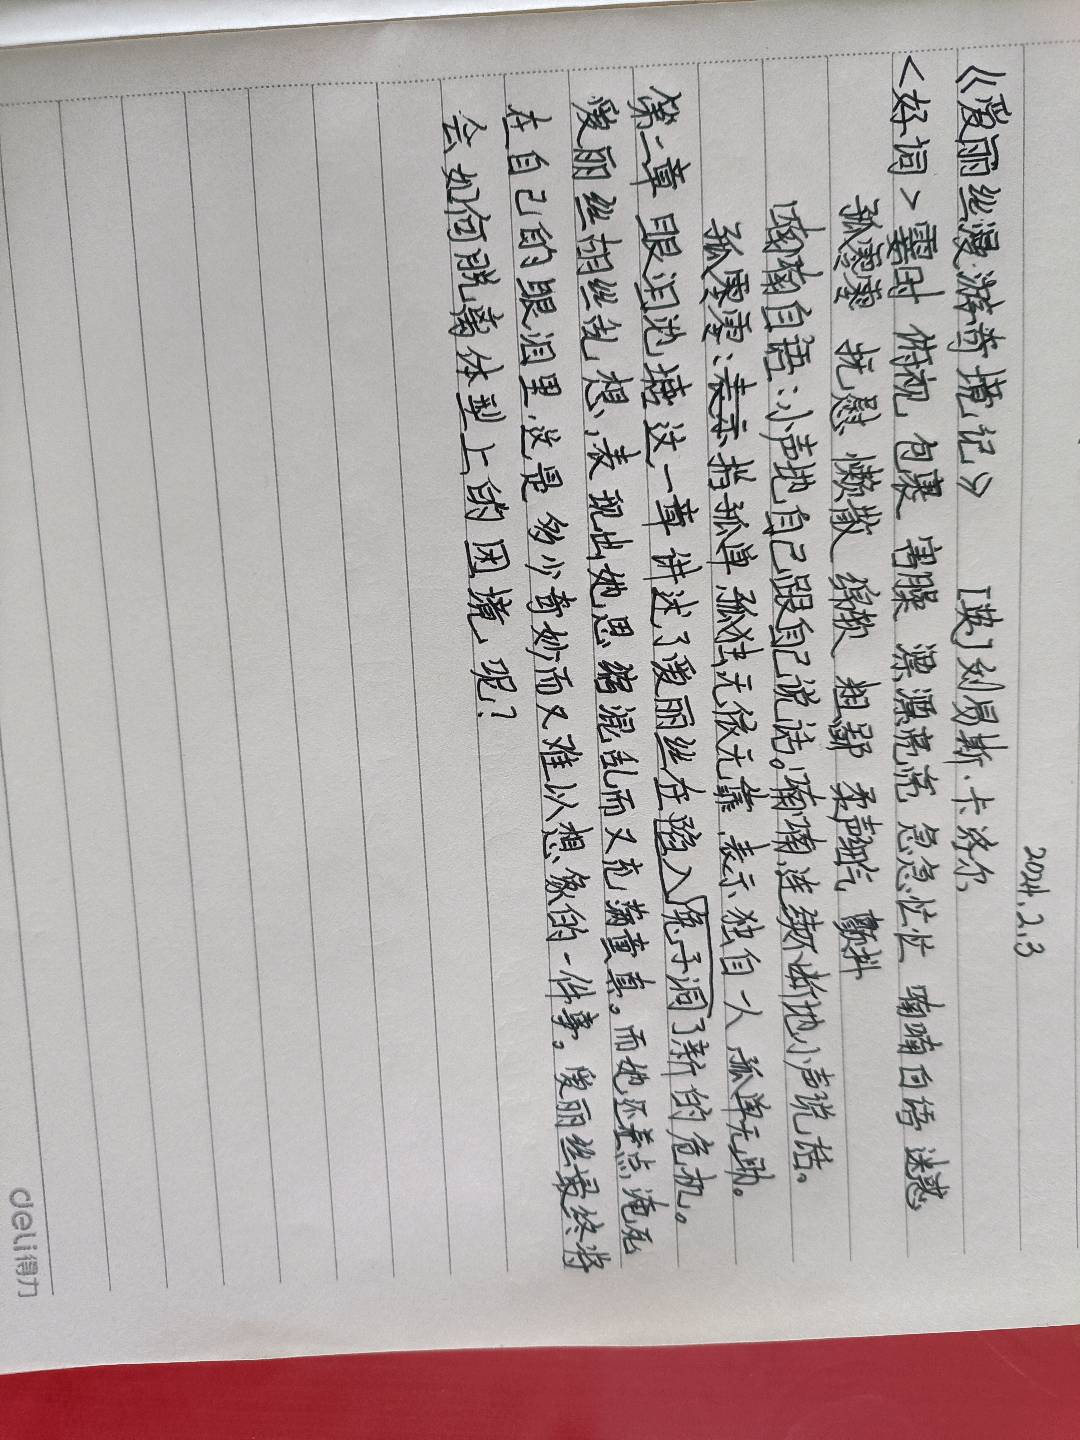 2024.2.3
《爱丽丝漫游奇境记》 [英]刘易斯·卡洛尔
<好词> 霎时 俯视 包裹 害臊 漂漂亮亮 急急忙忙 喃喃自语 迷惑
孤零零 抚慰 懒散 缎 粗鄙 柔声细气 颤抖
喃喃自语:小声地自己跟自己说话。喃喃,连续不断地小声说话。
孤零零:表示指孤单,孤独无依无靠,表示独自一人,孤单无助。
第二章 眼泪池塘这一章讲述了爱丽丝在陷入兔子洞了新的危机。
爱丽丝胡丝乱想,表现出她思绪混乱而又充满童真。而她还差点淹死
在自己的眼泪里,这是多少奇妙而又难以想象的一件事。爱丽丝最终将
会如何脱离体型上的困境呢?
deli得力